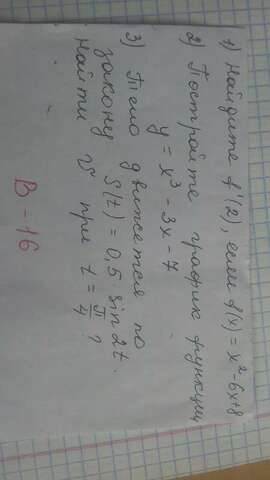 1) Найдите f'(2), если f(x) = x² - 6x + 8
2) Постройте график функции
y = x³ - 3x - 7
3) Тело движется по
закону S(t) = 0,5 sin 2t.
Найти v при t = π/4 ?
В - 16